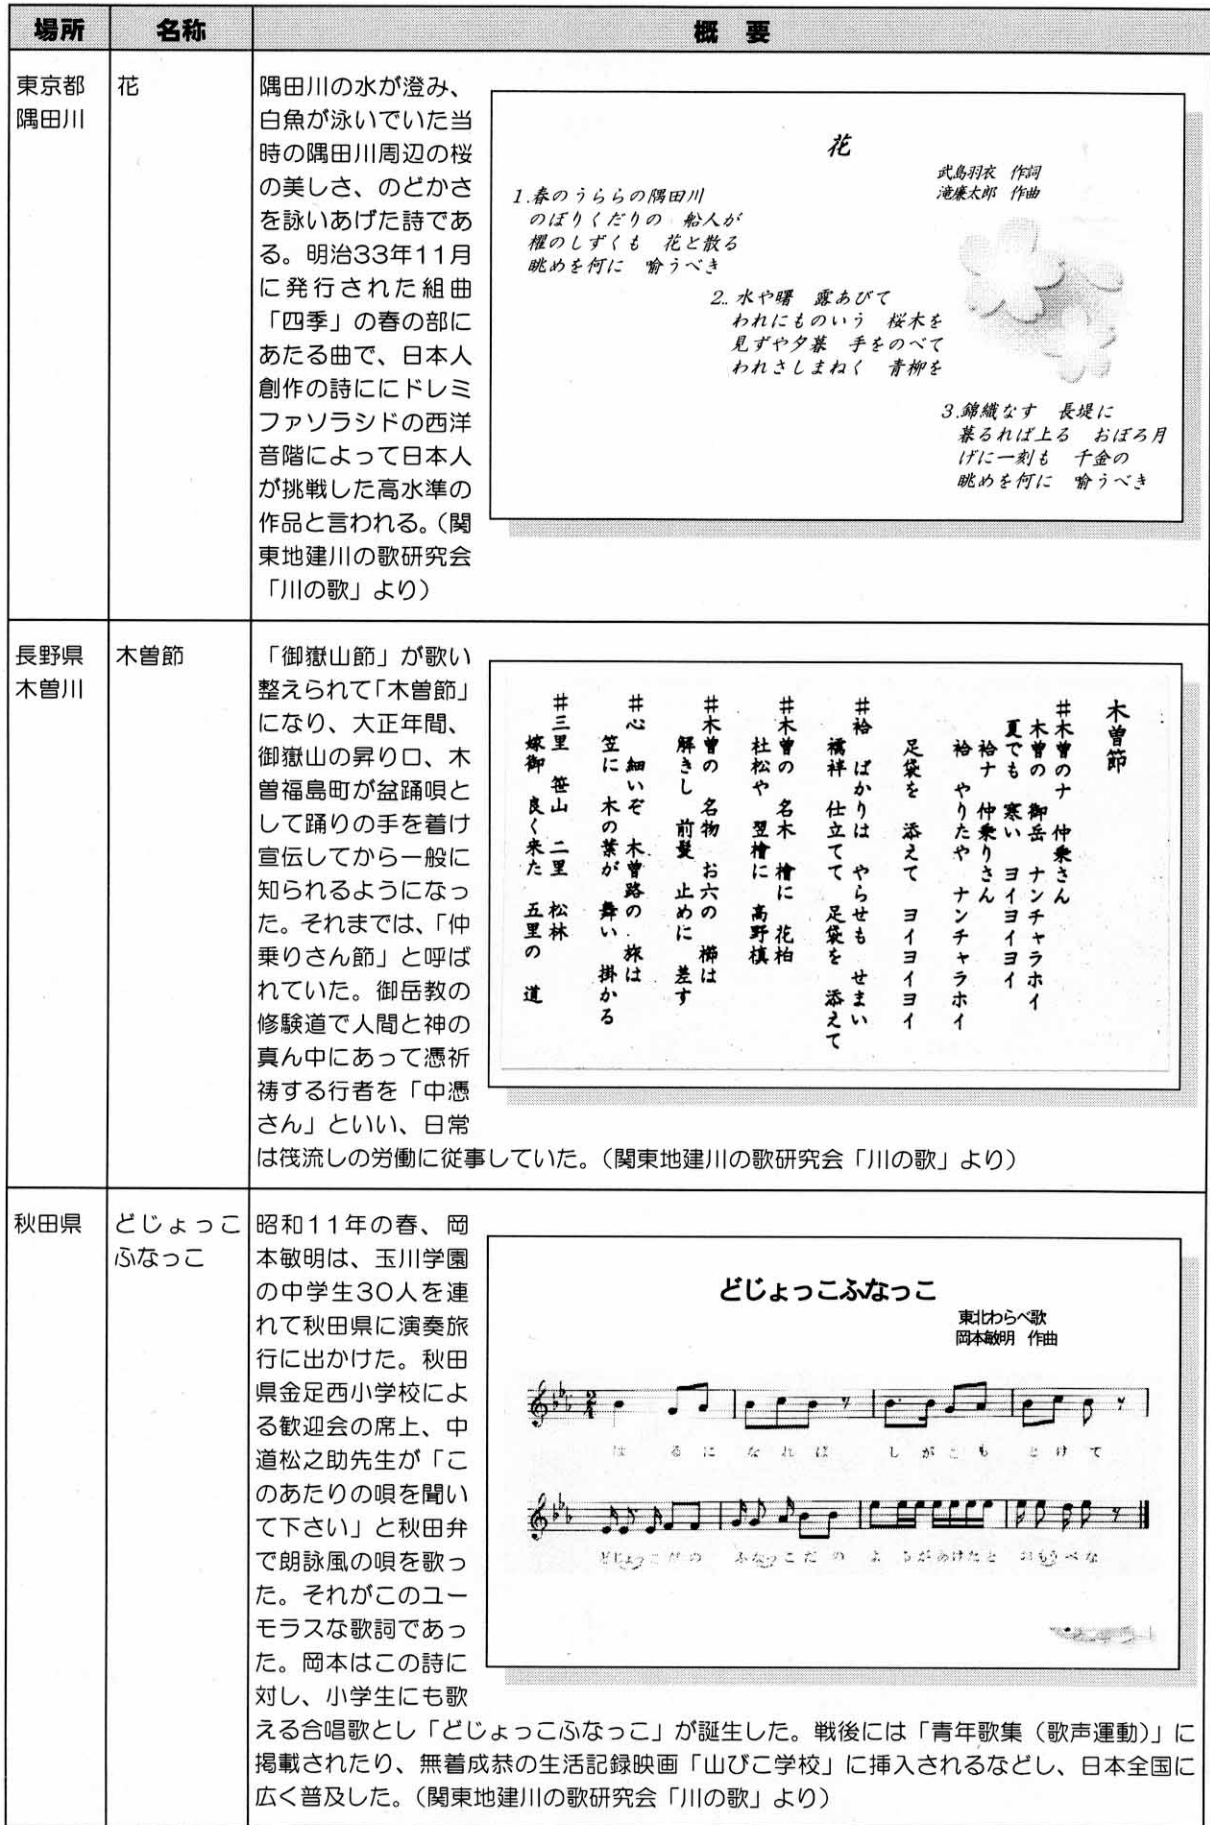 場所 名称 概要
東京都
隅田川
花
隅田川の水が澄み、
白魚が泳いでいた当
時の隅田川周辺の桜
の美しさ、のどかさ
を詠いあげた詩であ
る。明治33年11月
に発行された組曲
「四季」の春の部に
あたる曲で、日本人
創作の詩ににドレミ
ファソラシドの西洋
音階によって日本人
が挑戦した高水準の
作品と言われる。（関
東地建川の歌研究会
「川の歌」より）
花
武島羽衣 作詞
滝廉太郎 作曲
1.春のうららの隅田川
のぼりくだりの 船人が
櫂のしずくも 花と散る
眺めを何に 喩うべき
2.. 水や曙 露あびて
われにものいう 桜木を
見ずや夕暮 手をのべて
われさしまねく 青柳を
3.錦織なす 長堤に
暮るれば上る おぼろ月
げに一刻も 千金の
眺めを何に 喩うべき
長野県
木曽川
木曽節
「御嶽山節」が歌い
整えられて「木曽節」
になり、大正年間、
御嶽山の昇り口、木
曽福島町が盆踊唄と
して踊りの手を着け
宣伝してから一般に
知られるようになっ
た。それまでは、「仲
乗りさん節」と呼ば
れていた。御岳教の
修験道で人間と神の
真ん中にあって憑祈
祷する行者を「中憑
さん」といい、日常
は筏流しの労働に従事していた。（関東地建川の歌研究会「川の歌」より）
木曽節
#木曽のナ 仲乗さん
木曽の 御岳 ナンチャラホイ
夏でも 寒い ヨイヨイヨイ
袷ナ 仲乗りさん
袷 やりたや ナンチャラホイ
足袋を 添えて ヨイヨイヨイ
#袷 ばかりは やらせも せまい
襦袢 仕立てて 足袋を 添えて
#木曽の 名木 檜に 花柏
杜松や 翌檜に 高野槙
#木曽の 名物 お六の 櫛は
解きし 前髪 止めに 差す
#心 細いぞ 木曽路の 旅は
笠に 木の葉が 舞い 掛かる
#三里 笹山 二里 松林
嫁御 良く来た 五里の 道
秋田県
どじょっこ
ふなっこ
昭和11年の春、岡
本敏明は、玉川学園
の中学生30人を連
れて秋田県に演奏旅
行に出かけた。秋田
県金足西小学校によ
る歓迎会の席上、中
道松之助先生が「こ
のあたりの唄を聞い
て下さい」と秋田弁
で朗詠風の唄を歌っ
た。それがこのユー
モラスな歌詞であっ
た。岡本はこの詩に
対し、小学生にも歌
える合唱歌とし「どじょっこふなっこ」が誕生した。戦後には「青年歌集（歌声運動）」に
掲載されたり、無着成恭の生活記録映画「山びこ学校」に挿入されるなどし、日本全国に
広く普及した。（関東地建川の歌研究会「川の歌」より）
どじょっこふなっこ
東北わらべ歌
岡本敏明 作曲
は る に な れ ば し が こ も と け て
どじょっこだの ふなっこだ の よ るがあけたと おもうべな